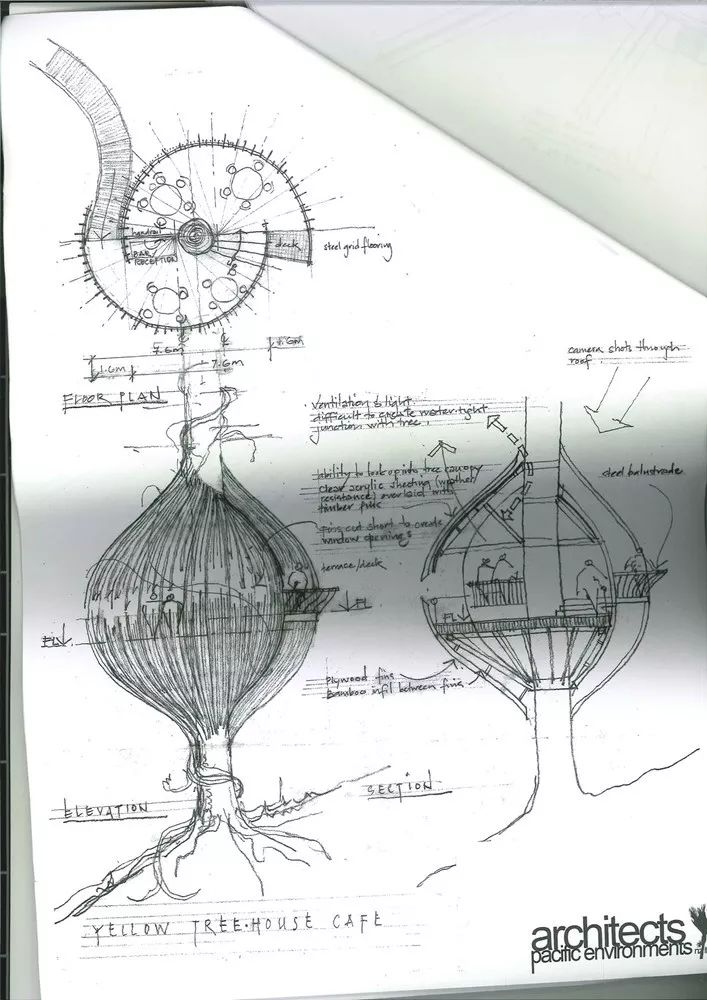 handrail
BAR
RECEPTION
deck
steel grid flooring
1.6m
7.6m
FLOOR PLAN
camera shots through
roof.
Ventilation & light
difficult to create water-tight
junction with tree.
ability to look up into tree canopy
clear acrylic sheeting (weather
resistance) overlaid with
timber fins
fins cut short to create
window openings
terrace/deck
steel balustrade
FL
FL
FL
plywood fins
Bamboo infil between fins
ELEVATION
SECTION
YELLOW TREE·HOUSE CAFE
architects
pacific environments